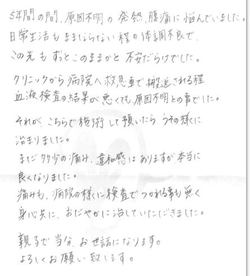 5年間の間、原因不明の発熱、腹痛に悩んでいました。
日常生活もままならない程の体調不良で、
この先もずっとこのままかと不安だらけでした。
クリニックから病院へ救急車で搬送される程
血液検査の結果が悪くても原因不明との事でした。
それが、こちらで施術して頂いたらうその様に
治まりました。
まだ多少の痛み、違和感はありますが本当に
良くなりました。
痛みも、病院の様に検査でつかれる事も無く
身心共に、おだやかに治していただきました。
親子で当分、お世話になります。
よろしくお願い致します。